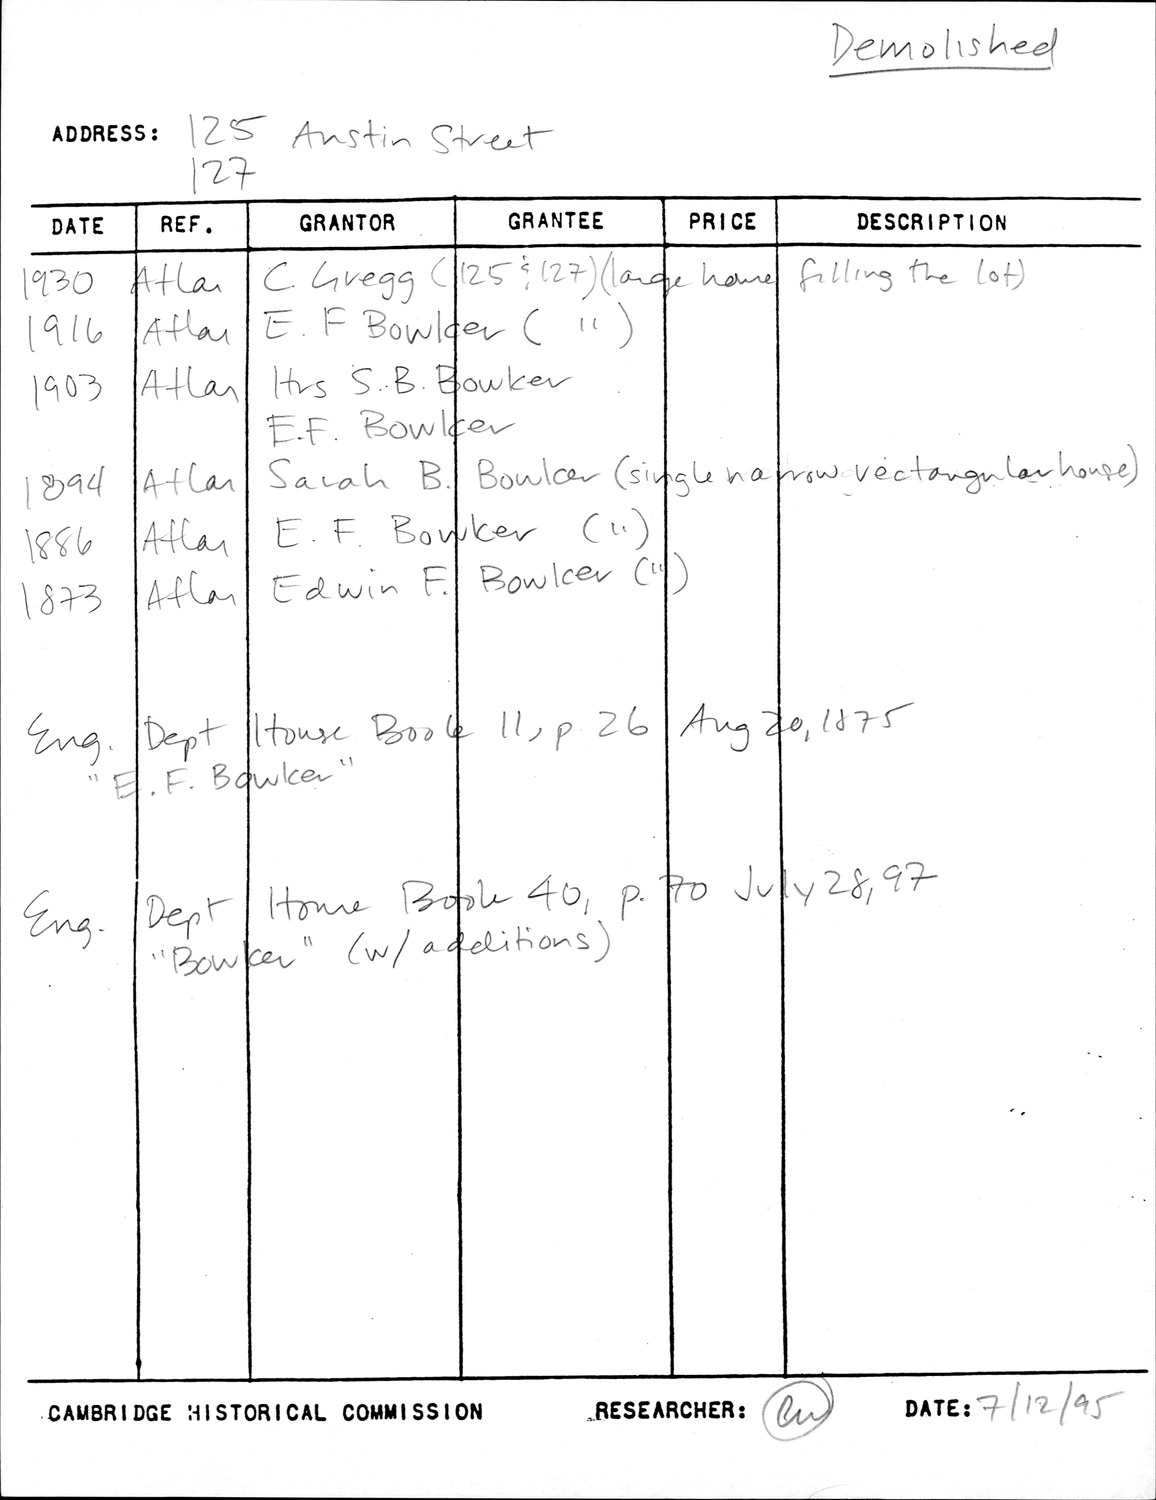 Demolished
ADDRESS: 125 Austin Street
127
DATE REF. GRANTOR GRANTEE PRICE DESCRIPTION
1930 Atlas C. Gregg (125 & 127) (large house filling the lot)
1916 Atlas E. F Bowker ( " )
1903 Atlas Hrs S.B. Bowker
E.F. Bowker
1894 Atlas Sarah B. Bowker (single narrow rectangular house)
1886 Atlas E. F. Bowker (")
1873 Atlas Edwin F. Bowker (")
Eng. Dept House Book 11, p 26 Aug 20, 1875
"E. F. Bowker"
Eng. Dept House Book 40, p. 70 July 28, 97
"Bowker" (w/ additions)
CAMBRIDGE HISTORICAL COMMISSION RESEARCHER: DATE: 7/12/95